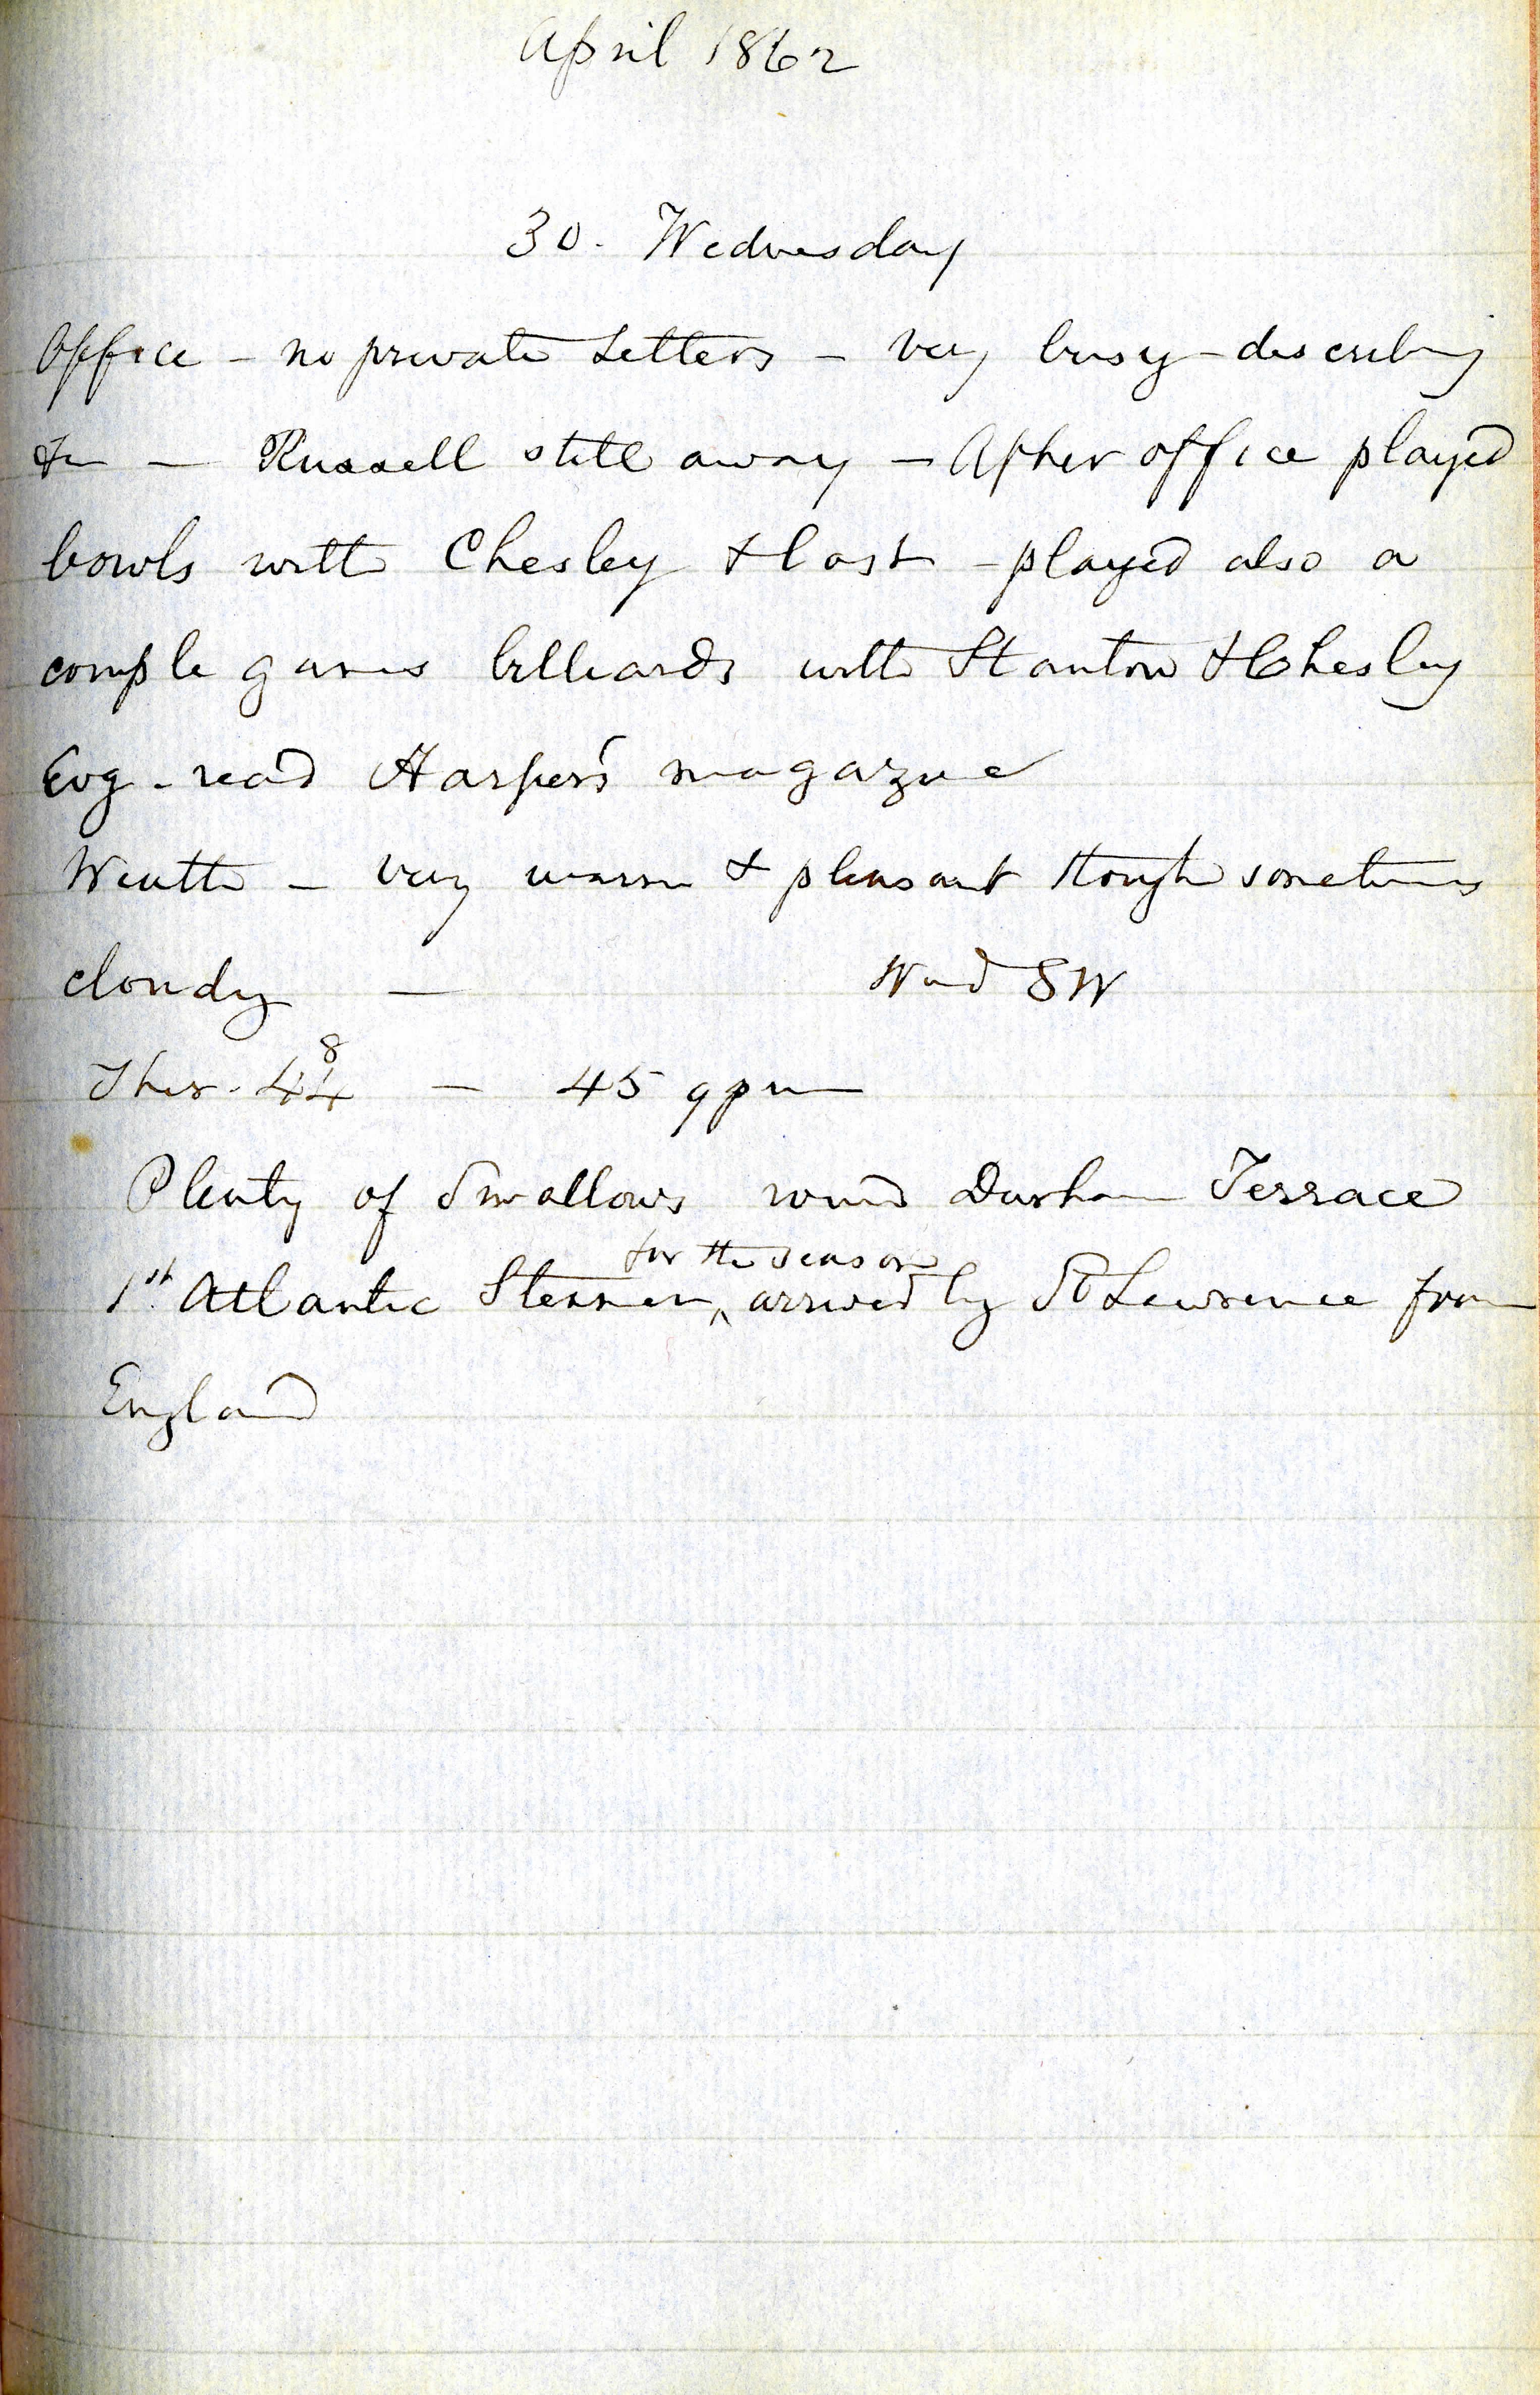 April 1862
30. Wednesday
Office - no private letters - very busy - describing
&c - Russell still away - After office played
bowls with Chesley & lost - played also a
couple games billiards with Stanton & Chesley
Evg - read Harper's magazine
Weather - very warm & pleasant though sometimes
cloudy - Wind SW
Ther. 44 8 - 45 9 pm
Plenty of Swallows round Durham Terrace
for the season
1st Atlantic Steamer ^ arrived by St Lawrence from
England